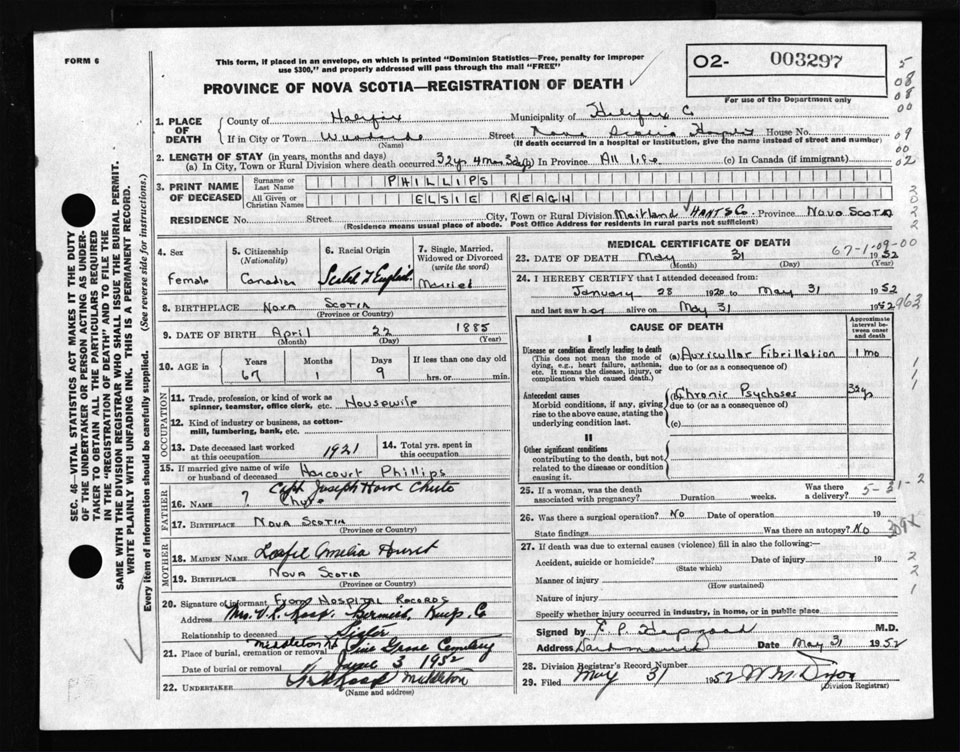 FORM 6
This form, if placed in an envelope, on which is printed "Dominion Statistics—Free, penalty for improper
use $300," and properly addressed will pass through the mail "FREE"
O2- 003297
For use of the Department only
PROVINCE OF NOVA SCOTIA—REGISTRATION OF DEATH
1. PLACE OF DEATH
County of Halifax Municipality of Halifax Co
If in City or Town (Name) Street Nova Scotia Hospital House No.
(If death occurred in a hospital or institution, give the name instead of street and number)
2. LENGTH OF STAY (in years, months and days)
(a) In City, Town or Rural Division where death occurred 32 yrs 4 mos 3 dys (b) In Province All life (c) In Canada (if immigrant)
3. PRINT NAME OF DECEASED
Surname or Last Name PHILLIPS
All Given or Christian Names ELSIE REAGH
RESIDENCE No. Street City, Town or Rural Division Maitland HANTS Co. Province Nova Scotia
(Residence means usual place of abode. Post Office Address for residents in rural parts not sufficient)
4. Sex Female
5. Citizenship (Nationality) Canadian
6. Racial Origin Scotch & English
7. Single, Married, Widowed or Divorced (write the word) Married
8. BIRTHPLACE Nova Scotia
(Province or Country)
9. DATE OF BIRTH April 22 1885
(Month) (Day) (Year)
10. AGE in Years 67 Months 1 Days 9 If less than one day old hrs. or min.
OCCUPATION
11. Trade, profession, or kind of work as
spinner, teamster, office clerk, etc. Housewife
12. Kind of industry or business, as cotton-
mill, lumbering, bank, etc.
13. Date deceased last worked at this occupation 1921
14. Total yrs. spent in this occupation
15. If married give name of wife or husband of deceased Harcourt Phillips
FATHER
Capt Joseph Howe Chute
16. Name ? Chute
17. BIRTHPLACE Nova Scotia
(Province or Country)
MOTHER
18. MAIDEN NAME Amelia
19. BIRTHPLACE Nova Scotia
(Province or Country)
20. Signature of informant From Hospital Records
Address Mrs. Berwick, Kings Co
Relationship to deceased Sister
21. Place of burial, cremation or removal Middleton NS Pine Grove Cemetery
Date of burial or removal June 3 1952
22. UNDERTAKER Middleton
(Name and address)
MEDICAL CERTIFICATE OF DEATH
67-1-09-00
23. DATE OF DEATH May 31 1952
(Month) (Day) (Year)
24. I HEREBY CERTIFY that I attended deceased from:
January 28 1920 to May 31 1952
and last saw her alive on May 31 1952
CAUSE OF DEATH
Approximate interval between onset and death
I
Disease or condition directly leading to death
(This does not mean the mode of dying, e.g., heart failure, asthenia, etc. It means the disease, injury, or complication which caused death.)
(a) Auricullar Fibrillation 1 mo
due to (or as a consequence of)
Antecedent causes
Morbid conditions, if any, giving rise to the above cause, stating the underlying condition last.
(b) Chronic Psychoses 32 yrs
due to (or as a consequence of)
(c)
II
Other significant conditions
contributing to the death, but not related to the disease or condition causing it.
25. If a woman, was the death associated with pregnancy? Duration weeks. Was there a delivery?
5-31-2
26. Was there a surgical operation? No Date of operation 19
State findings Was there an autopsy? No
27. If death was due to external causes (violence) fill in also the following:—
Accident, suicide or homicide? Date of injury 19
(State which)
Manner of injury
(How sustained)
Nature of injury
Specify whether injury occurred in industry, in home, or in public place
Signed by M.D.
Address Dartmouth Date May 31 1952
28. Division Registrar's Record Number
29. Filed May 31 1952
(Division Registrar)
SEC. 46—VITAL STATISTICS ACT MAKES IT THE DUTY
OF THE UNDERTAKER OR PERSON ACTING AS UNDER-
TAKER TO OBTAIN ALL THE PARTICULARS REQUIRED
IN THE "REGISTRATION OF DEATH" AND TO FILE THE
SAME WITH THE DIVISION REGISTRAR WHO SHALL ISSUE THE BURIAL PERMIT.
WRITE PLAINLY WITH UNFADING INK. THIS IS A PERMANENT RECORD.
Every item of information should be carefully supplied. (See reverse side for instructions.)